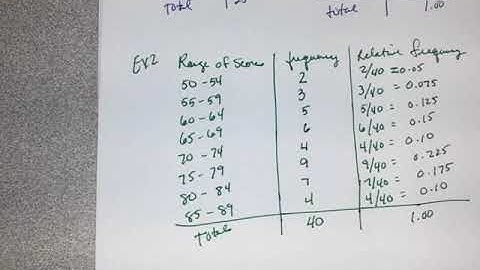 Total total 1.00
Ex2 Range of Scores frequency Relative frequency
50-54 2 2/40 = 0.05
55-59 3 3/40 = 0.075
60-64 5 5/40 = 0.125
65-69 6 6/40 = 0.15
70-74 4 4/40 = 0.10
75-79 9 9/40 = 0.225
80-84 7 7/40 = 0.175
85-89 4 4/40 = 0.10
Total 40 1.00